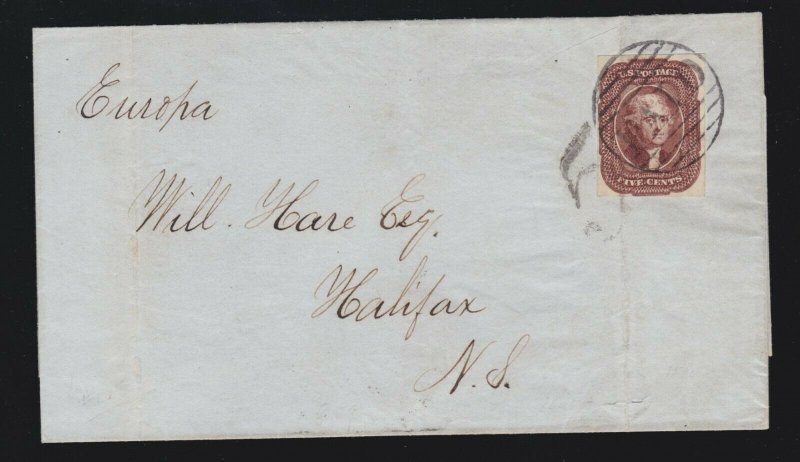 Europa
U.S. POSTAGE
FIVE CENTS
Will. Hare Esq.
Halifax
N.S.